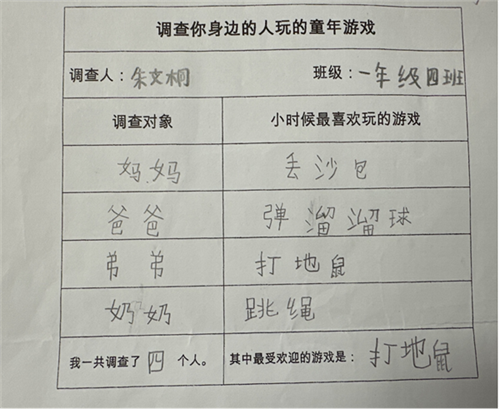 调查你身边的人玩的童年游戏
调查人：朱文桐 班级：一年级四班
调查对象 小时候最喜欢玩的游戏
妈妈 丢沙包
爸爸 弹溜溜球
弟弟 打地鼠
奶奶 跳绳
我一共调查了四个人。 其中最受欢迎的游戏是：打地鼠